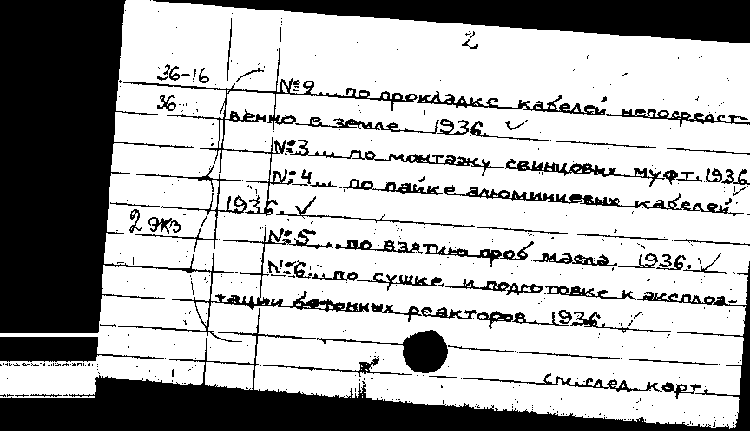 2
36-16
36
№2... по прокладке кабелей непосредст-
венно в земле. 1936. ✓
№3... по монтажу свинцовых муфт. 1936
№4... по пайке алюминиевых кабелей
1936. ✓
2 экз
№5... по взятию проб масла. 1936. ✓
№6... по сушке и подготовке к эксплоа-
тации бетонных реакторов. 1936. ✓
см. след. карт.